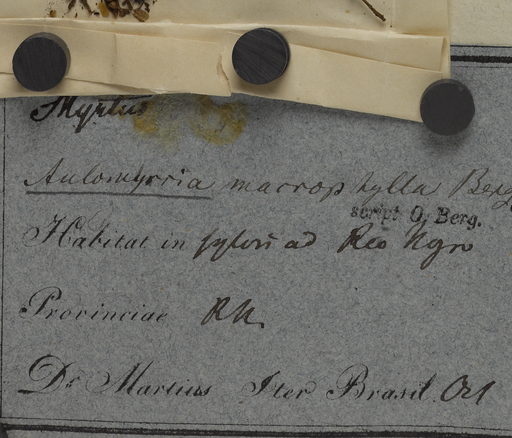 Myrtus
Aulomyrcia macrophylla Berg
script. O. Berg.
Habitat in sylvis ad Rio Ngro
Provinciae RN.
Dr Martius Iter Brasil. Oct